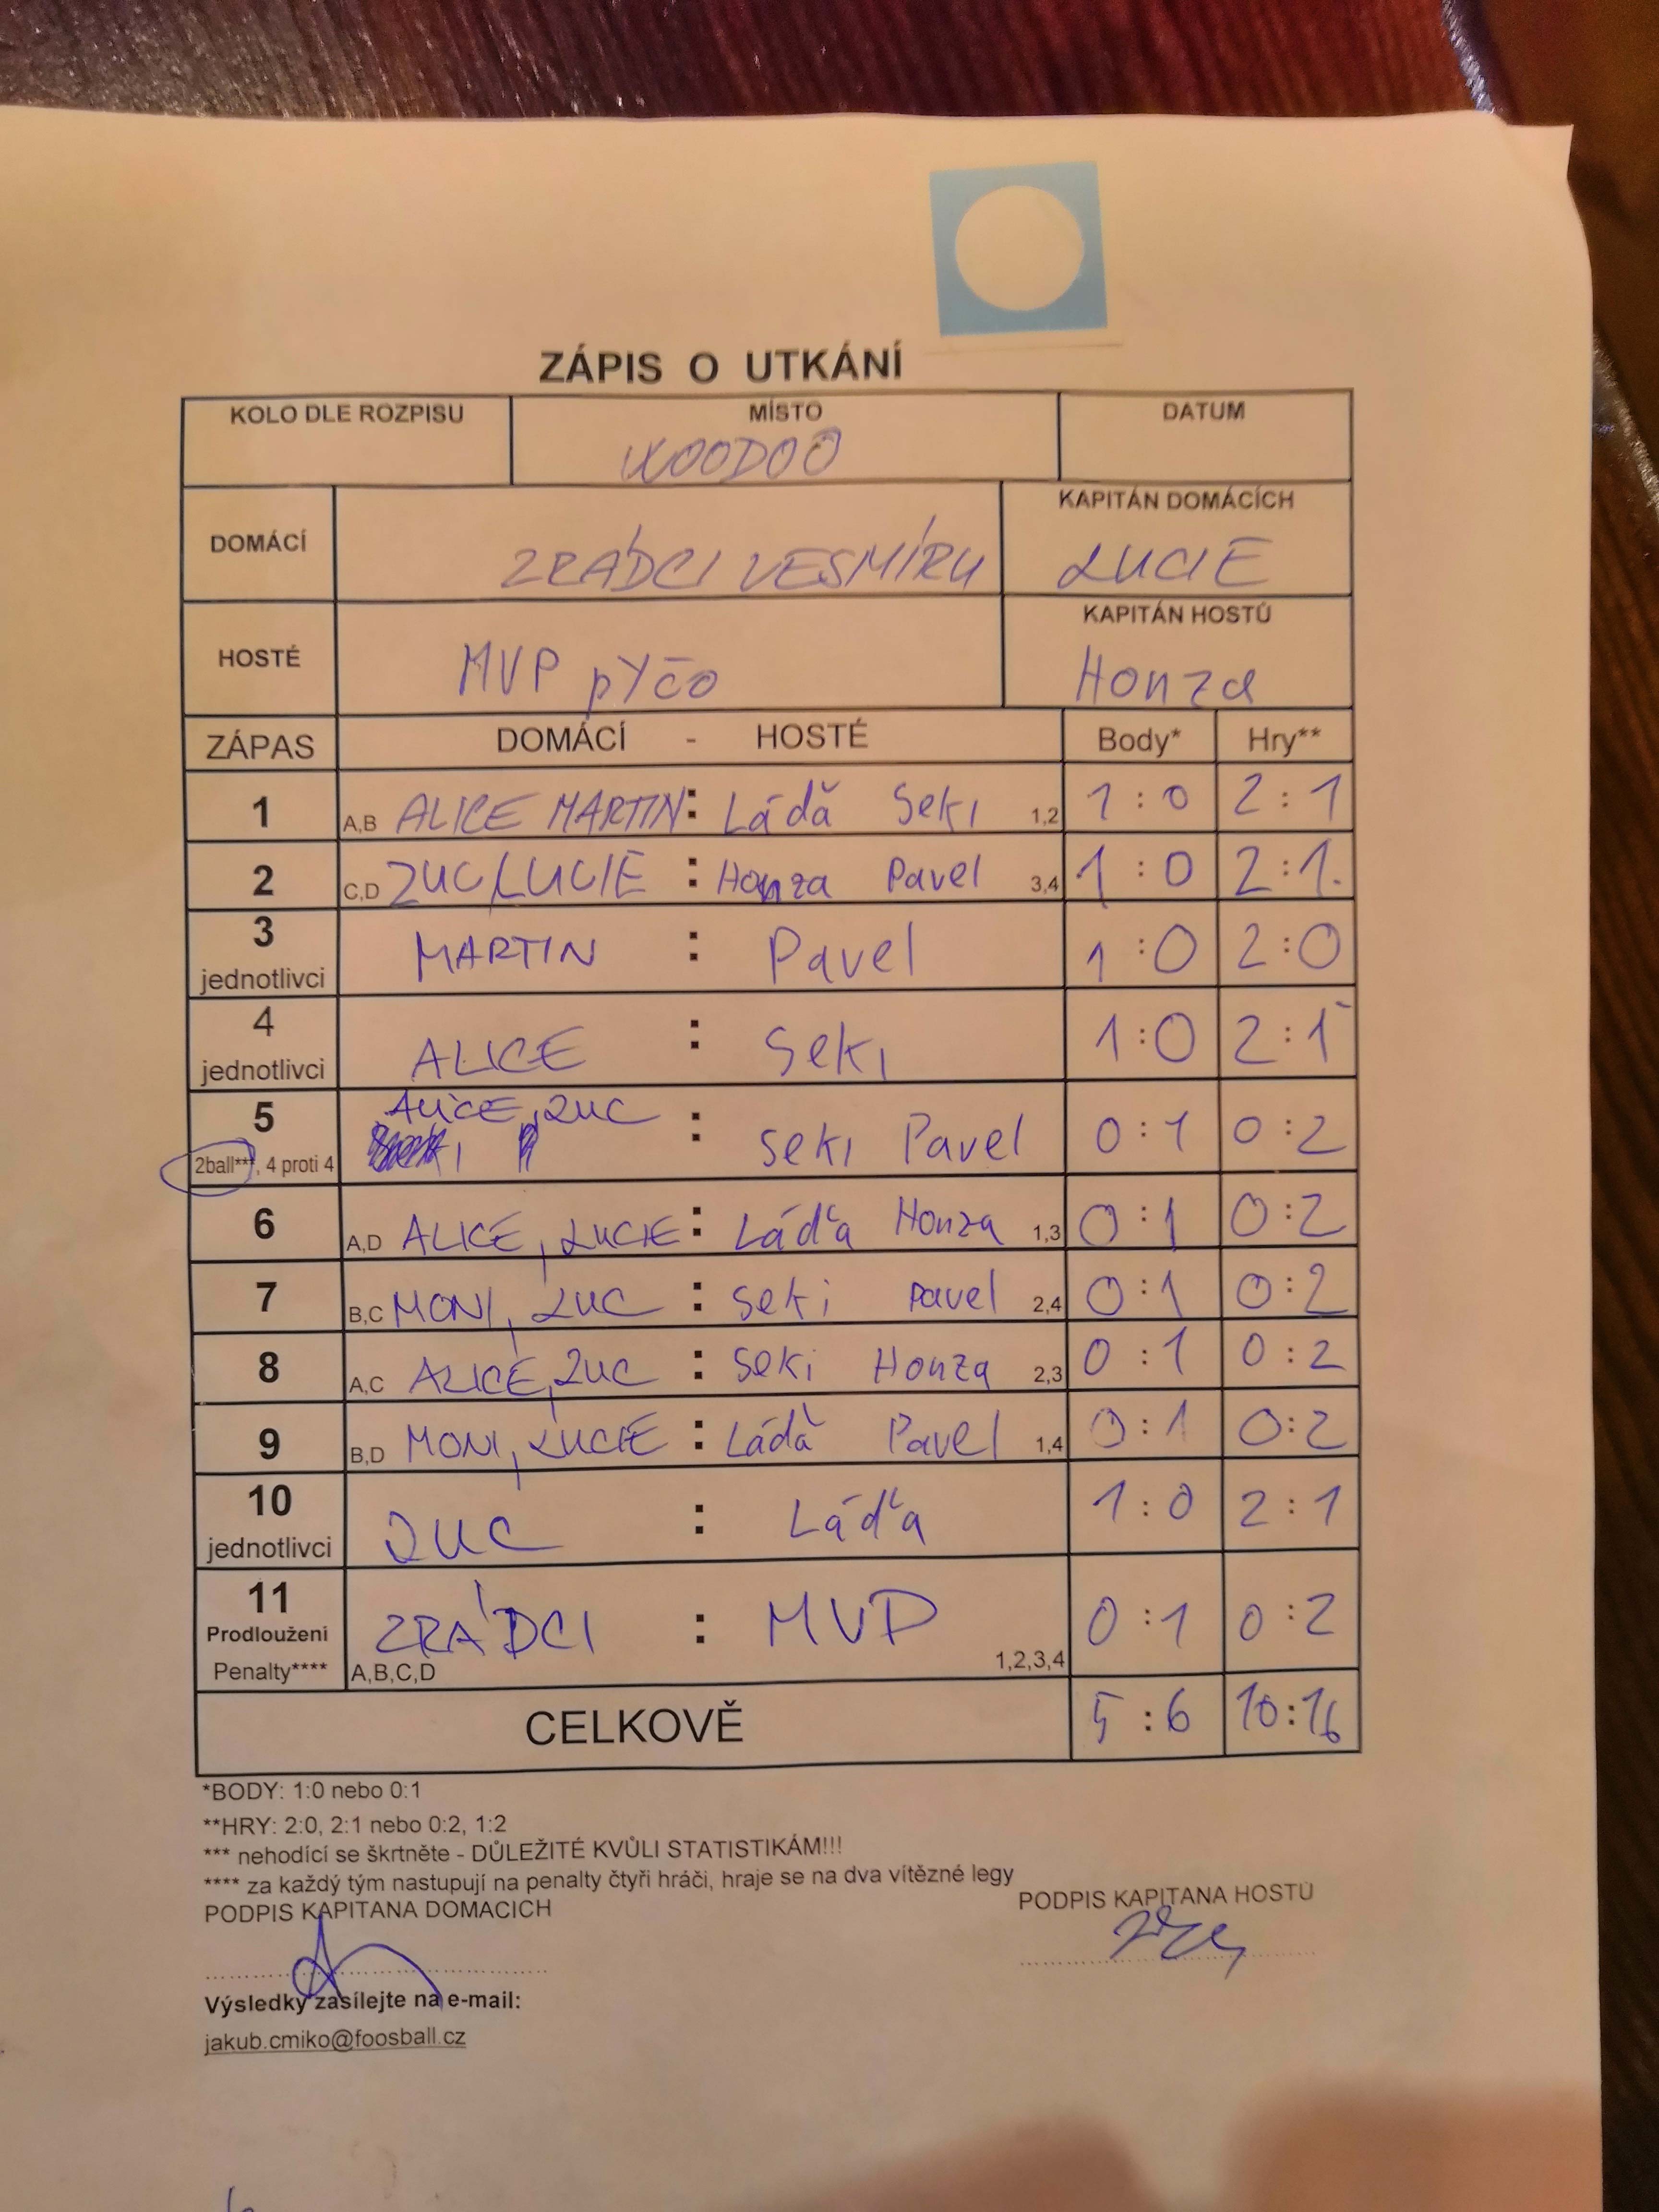 ZÁPIS O UTKÁNÍ
KOLO DLE ROZPISU MÍSTO DATUM
WOODOO
DOMÁCÍ ZRÁDCI VESMÍRU KAPITÁN DOMÁCÍCH
LUCIE
HOSTÉ MVP pYčo KAPITÁN HOSTŮ
Honza
ZÁPAS DOMÁCÍ - HOSTÉ Body* Hry**
1 A,B ALICE MARTIN : Láďa Seki 1,2 1:0 2:1
2 C,D ZUC/LUCIE : Honza Pavel 3,4 1:0 2:1.
3 jednotlivci MARTIN : Pavel 1:0 2:0
4 jednotlivci ALICE : Seki 1:0 2:1
5 ALICE, ZUC : Seki Pavel 0:1 0:2
2ball***, 4 proti 4
6 A,D ALICE, LUCIE : Láďa Honza 1,3 0:1 0:2
7 B,C MONI, ZUC : Seki Pavel 2,4 0:1 0:2
8 A,C ALICE, ZUC : Seki Honza 2,3 0:1 0:2
9 B,D MONI, LUCIE : Láďa Pavel 1,4 0:1 0:2
10 jednotlivci ZUC : Láďa 1:0 2:1
11 ZRÁDCI : MVP 0:1 0:2
Prodloužení
Penalty**** A,B,C,D 1,2,3,4
CELKOVĚ 5:6 10:16
*BODY: 1:0 nebo 0:1
**HRY: 2:0, 2:1 nebo 0:2, 1:2
*** nehodící se škrtněte - DŮLEŽITÉ KVŮLI STATISTIKÁM!!!
**** za každý tým nastupují na penalty čtyři hráči, hraje se na dva vítězné legy
PODPIS KAPITANA DOMACICH PODPIS KAPITANA HOSTŮ
Výsledky zasílejte na e-mail:
jakub.cmiko@foosball.cz